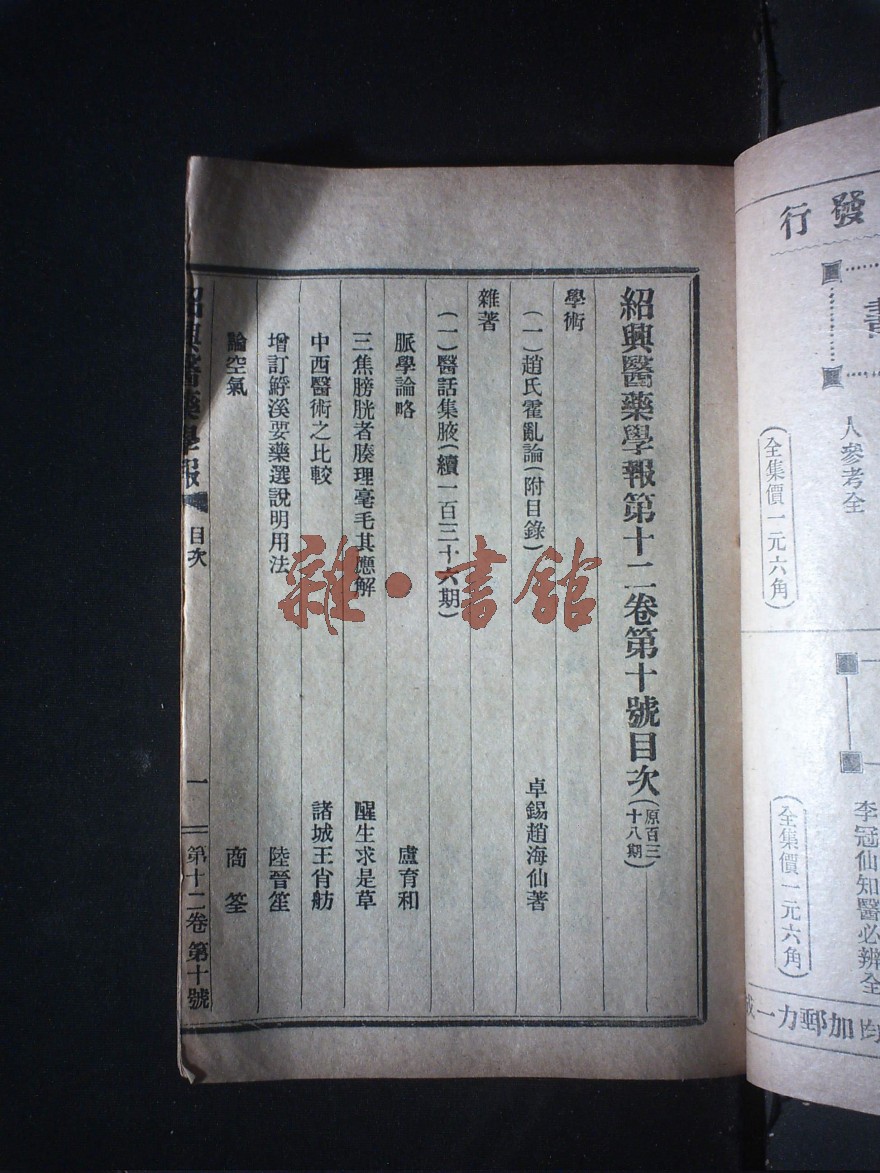 紹興醫藥學報第十二卷第十號目次(原百三十八期)
學術
(一)趙氏霍亂論(附目錄) 卓錫趙海仙著
雜著
(一)醫話集腋(續一百三十六期)
脈學論略 盧育和
三焦膀胱者腠理毫毛其應解 醒生求是草
中西醫術之比較 諸城王肖舫
增訂鮮溪要藥選說明用法 陸晉笙
論空氣 商筌
紹興醫藥學報 目次 一 第十二卷第十號
發行
人參考全
全集價一元六角
李冠仙知醫必辨全
全集價一元六角
均加郵力一
雜·書館